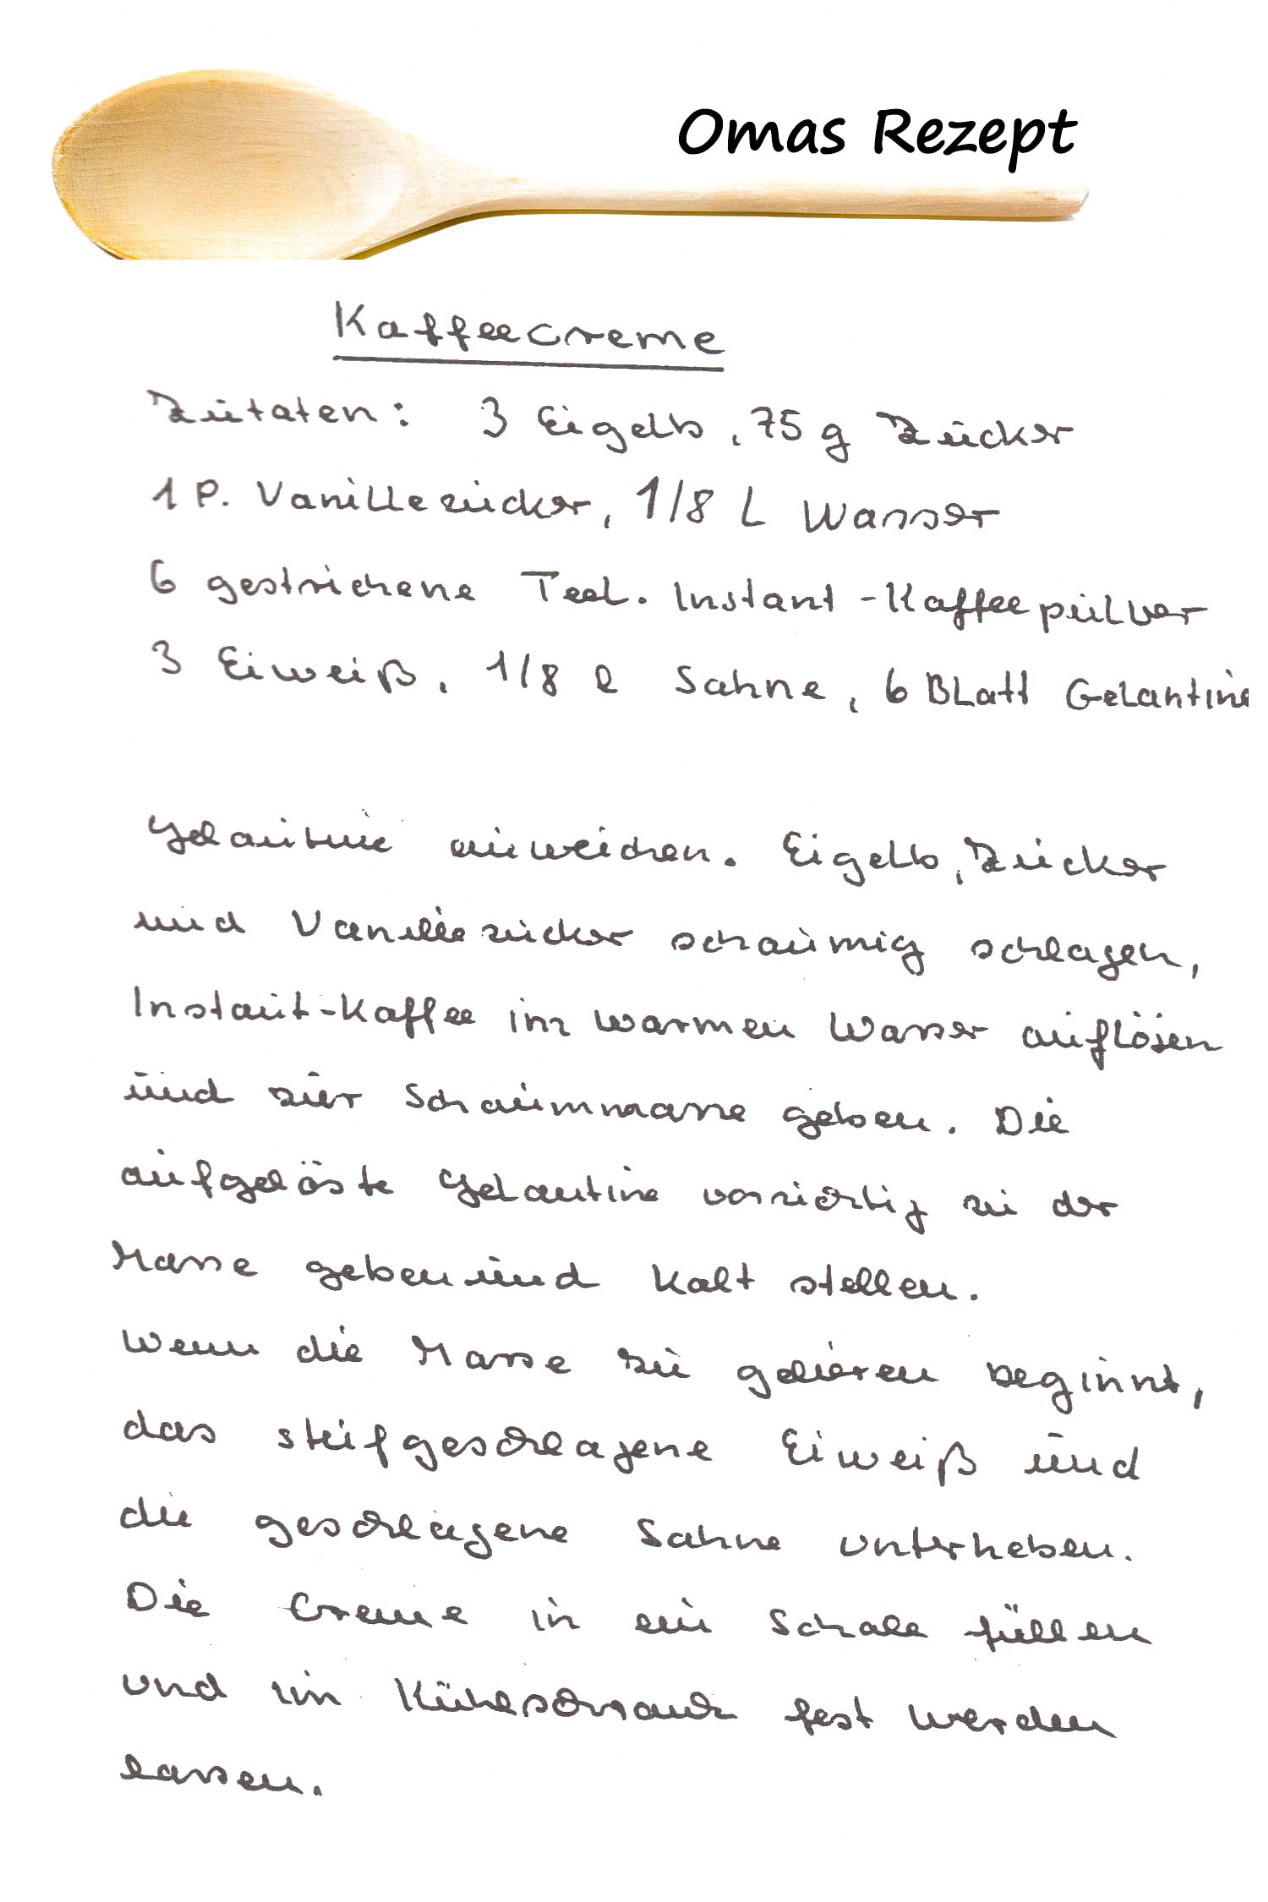 Omas Rezept
Kaffeecreme
Zutaten: 3 Eigelb, 75 g Zucker
1 P. Vanillezucker, 1/8 L Wasser
6 gestrichene Teel. Instant-Kaffeepulver
3 Eiweiß, 1/8 l Sahne, 6 Blatt Gelantine
Gelantine einweichen. Eigelb, Zucker
und Vanillezucker schaumig schlagen,
Instant-Kaffee im warmen Wasser auflösen
und zur Schaummasse geben. Die
aufgelöste Gelantine vorsichtig zu der
Masse geben und kalt stellen.
Wenn die Masse zu gelieren beginnt,
das steifgeschlagene Eiweiß und
die geschlagene Sahne unterheben.
Die Creme in ein Schale füllen
und im Kühlschrank fest werden
lassen.